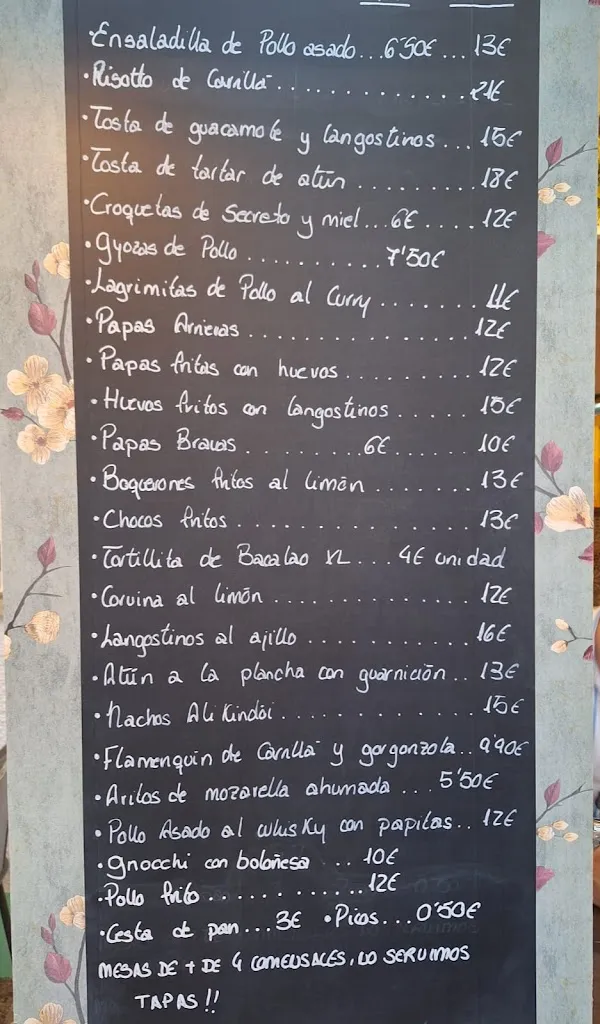 ·Ensaladilla de Pollo asado...6'50€... 13€
·Risotto de Carrillá.............21€
·Tosta de guacamole y langostinos... 15€
·Tosta de tartar de atún.........18€
·Croquetas de Secreto y miel...6€.... 12€
·Gyozas de Pollo..........7'50€
·Lagrimitas de Pollo al Curry....... 11€
·Papas Arrieras.............. 12€
·Papas fritas con huevos......... 12€
·Huevos fritos con langostinos...... 15€
·Papas Bravas........6€...... 10€
·Boquerones fritos al limón....... 13€
·Chocos fritos............... 13€
·Tortillita de Bacalao XL... 4€ unidad
·Corvina al limón............. 12€
·Langostinos al ajillo.......... 16€
·Atún a la plancha con guarnición.. 13€
·Nachos Ali Kindói............. 15€
·Flamenquin de Carrillá y gorgonzola.. 9'90€
·Arillos de mozarella ahumada... 5'50€
·Pollo Asado al whisky con papitas.. 12€
·Gnocchi con boloñesa ... 10€
·Pollo frito............ 12€
·Cesta de pan...3€ ·Picos...0'50€
MESAS DE + DE 4 COMENSALES, NO SERVIMOS
TAPAS!!